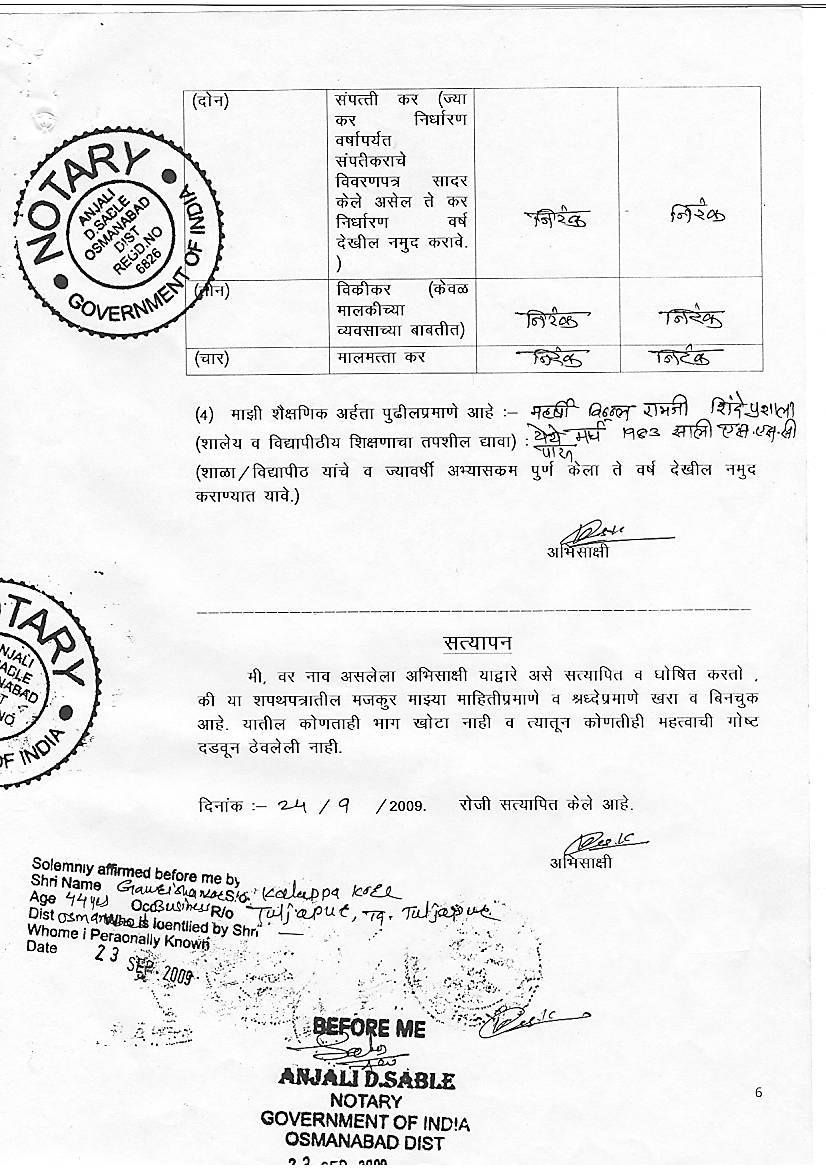 (दोन)
संपत्ती कर (ज्या
कर निर्धारण
वर्षापर्यंत
संपतीकराचे
विवरणपत्र सादर
केले असेल ते कर
निर्धारण वर्ष
देखील नमुद करावे.
)
निरंक निरंक
NOTARY
ANJALI
D.SABLE
OSMANABAD
DIST
REGD.NO
6826
GOVERNMENT OF INDIA
(तीन)
विकीकर (केवळ
मालकीच्या
व्यवसाच्या बाबतीत)
निरंक निरंक
(चार) मालमत्ता कर निरंक निरंक
(4) माझी शैक्षणिक अर्हता पुढीलप्रमाणे आहे :– महर्षी विठ्ठल रामजी शिंदे प्रशाला
(शालेय व विद्यापीठीय शिक्षणाचा तपशील द्यावा) : येथे मार्च 1983 साली एस.एस.सी
पास
(शाळा/विद्यापीठ यांचे व ज्यावर्षी अभ्यासकम पुर्ण केला ते वर्ष देखील नमुद
कराण्यात यावे.)
अभिसाक्षी
NOTARY
ANJALI
SABLE
NABAD
T
NO
OF INDIA
सत्यापन
मी, वर नाव असलेला अभिसाक्षी याद्वारे असे सत्यापित व घोषित करतो .
की या शपथपत्रातील मजकुर माझ्या माहितीप्रमाणे व श्रध्देप्रमाणे खरा व बिनचुक
आहे. यातील कोणताही भाग खोटा नाही व त्यातून कोणतीही महत्वाची गोष्ट
दडवून ठेवलेली नाही.
दिनांक :– 24 / 9 /2009. रोजी सत्यापित केले आहे.
अभिसाक्षी
Solemnly affirmed before me by
Shri Name S/o. Kalappa Kore
Age 44 yrs Occ Business R/o Tuljapur, Tq. Tuljapur
Dist Osmanabad Who is Identified by Shri
Whome i Peraonally Known
Date 23 SEP. 2009
BEFORE ME
ANJALI D.SABLE
NOTARY
GOVERNMENT OF INDIA
OSMANABAD DIST
23 SEP 2009
6